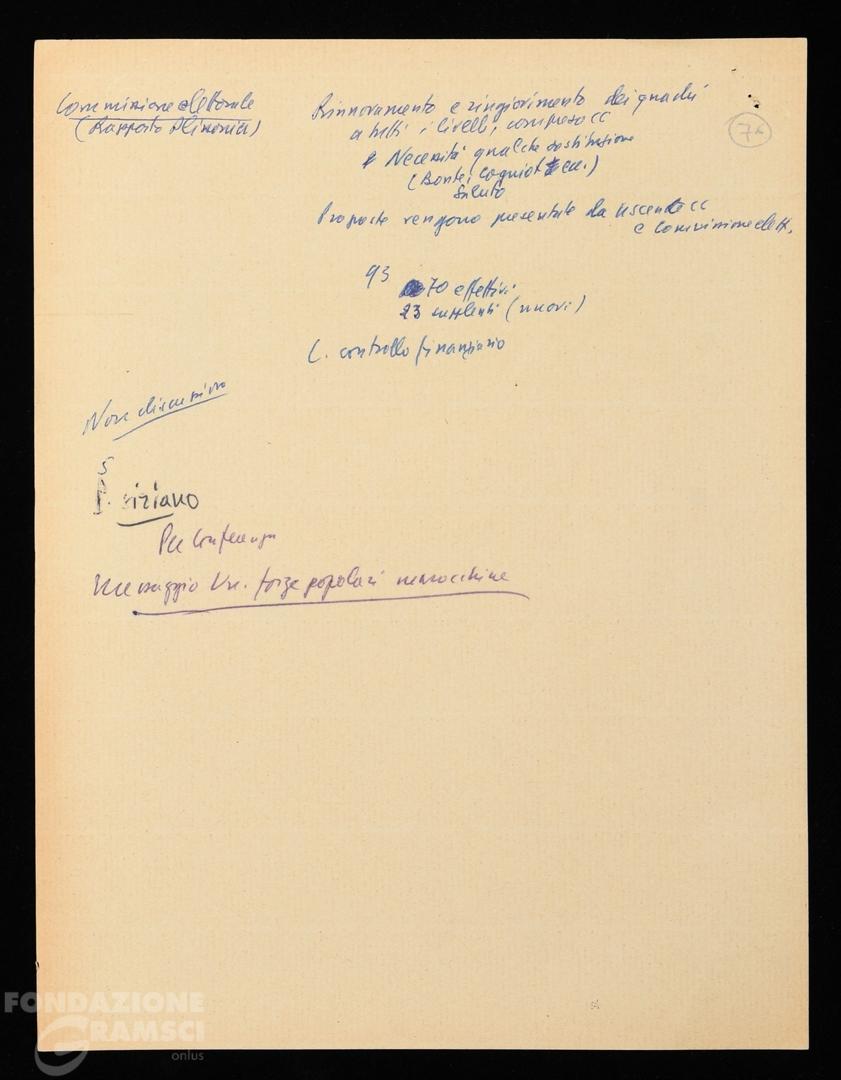 Commissione elettorale
(Rapporto Plissonnier)
Rinnovamento e ringiovimento dei quadri
a tutti i livelli, compreso CC
Necessità qualche sostituzione
(Bonte, Cogniot ecc.)
Saluto
Proposte vengono presentate da uscente CC
e commissione elett.
93
70 effettivi
23 supplenti (nuovi)
C. controllo finanziario
Non discussione
5
siriano
Per Conferenza
Messaggio Un. forze popolari marocchine
7a
FONDAZIONE
GRAMSCI
onlus